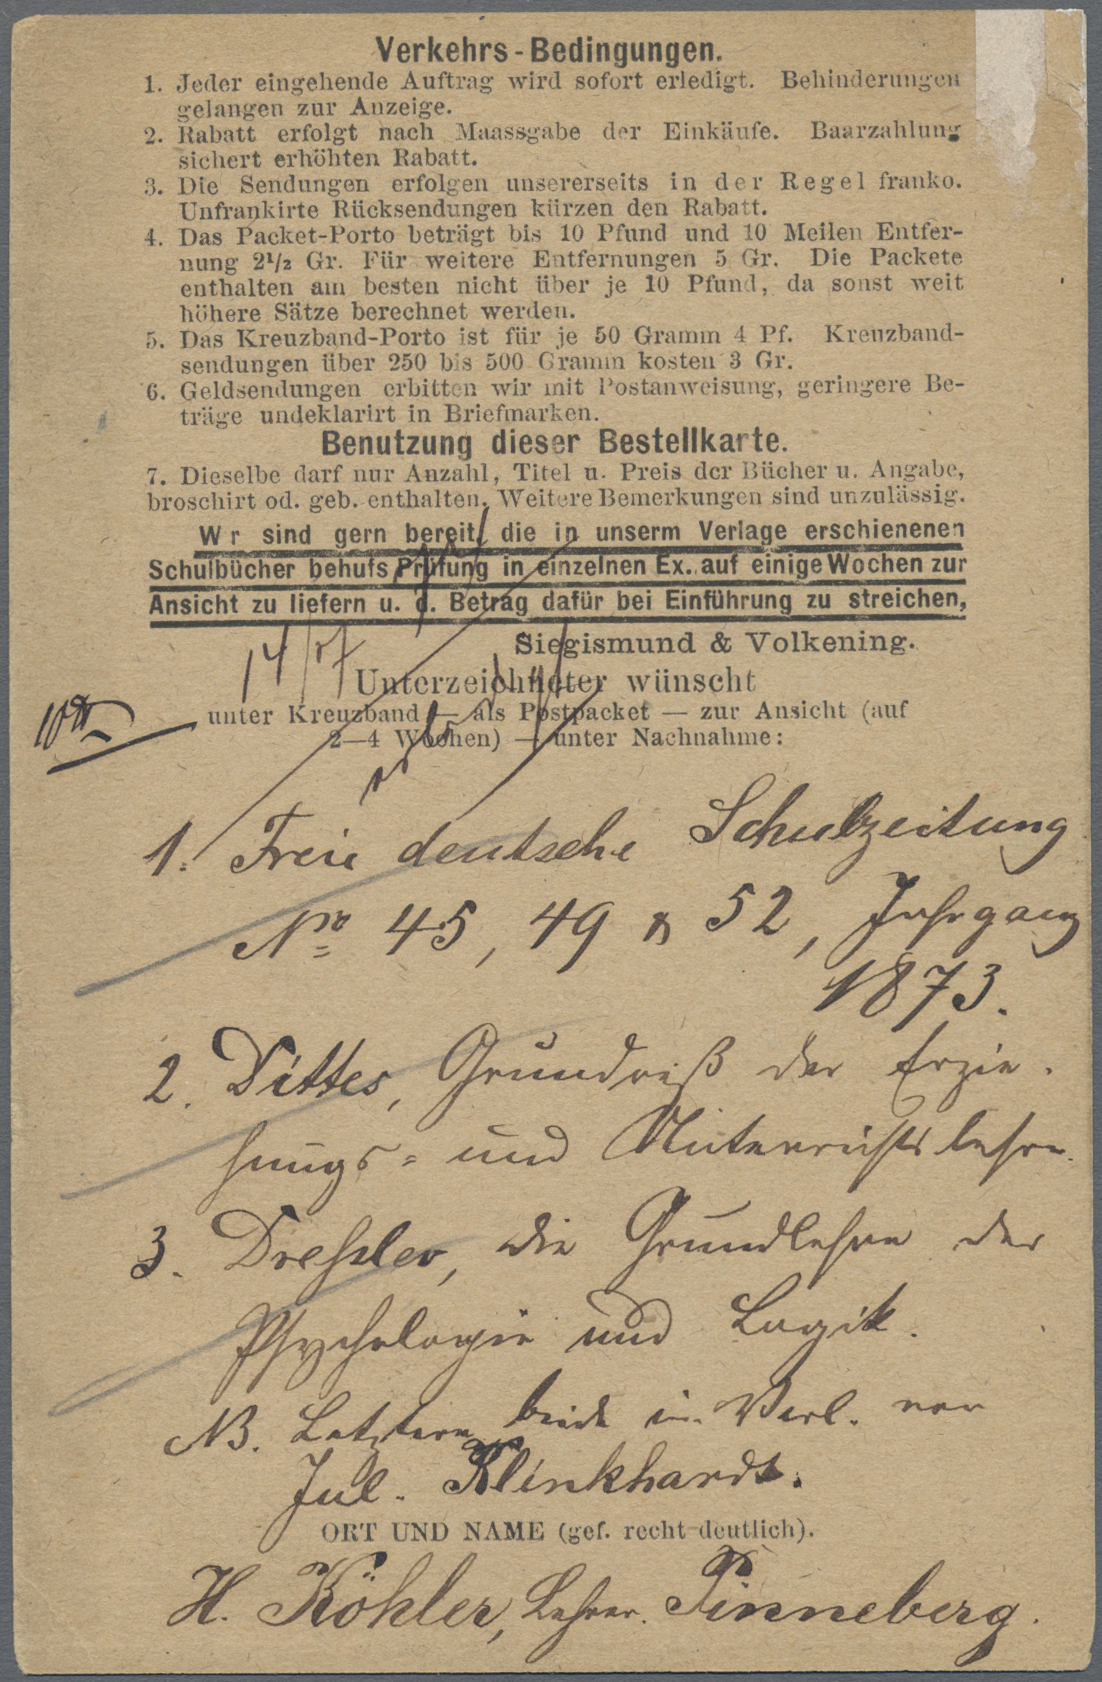 Verkehrs-Bedingungen.
1. Jeder eingehende Auftrag wird sofort erledigt. Behinderungen
gelangen zur Anzeige.
2. Rabatt erfolgt nach Maassgabe der Einkäufe. Baarzahlung
sichert erhöhten Rabatt.
3. Die Sendungen erfolgen unsererseits in der Regel franko.
Unfrankirte Rücksendungen kürzen den Rabatt.
4. Das Packet-Porto beträgt bis 10 Pfund und 10 Meilen Entfer-
nung 2½ Gr. Für weitere Entfernungen 5 Gr. Die Packete
enthalten am besten nicht über je 10 Pfund, da sonst weit
höhere Sätze berechnet werden.
5. Das Kreuzband-Porto ist für je 50 Gramm 4 Pf. Kreuzband-
sendungen über 250 bis 500 Gramm kosten 3 Gr.
6. Geldsendungen erbitten wir mit Postanweisung, geringere Be-
träge undeklarirt in Briefmarken.
Benutzung dieser Bestellkarte.
7. Dieselbe darf nur Anzahl, Titel u. Preis der Bücher u. Angabe,
broschirt od. geb. enthalten. Weitere Bemerkungen sind unzulässig.
W r sind gern bereit, die in unserm Verlage erschienenen
Schulbücher behufs Prüfung in einzelnen Ex. auf einige Wochen zur
Ansicht zu liefern u. d. Betrag dafür bei Einführung zu streichen,
Siegismund & Volkening.
14/
Unterzeichneter wünscht
unter Kreuzband — als Postpacket — zur Ansicht (auf
2—4 Wochen) — unter Nachnahme:
1. Freie deutsche Schulzeitung
No 45, 49 & 52, Jahrgang
1873.
2. Dittes, Grundriß der Erzie-
hungs- und Unterrichtslehre.
3. Dreßler, die Grundlehre der
Psychologie und Logik.
NB. Letztere beide im Verl. von
Jul. Klinkhardt.
ORT UND NAME (gef. recht deutlich).
H. Köhler, Lehrer. Pinneberg.